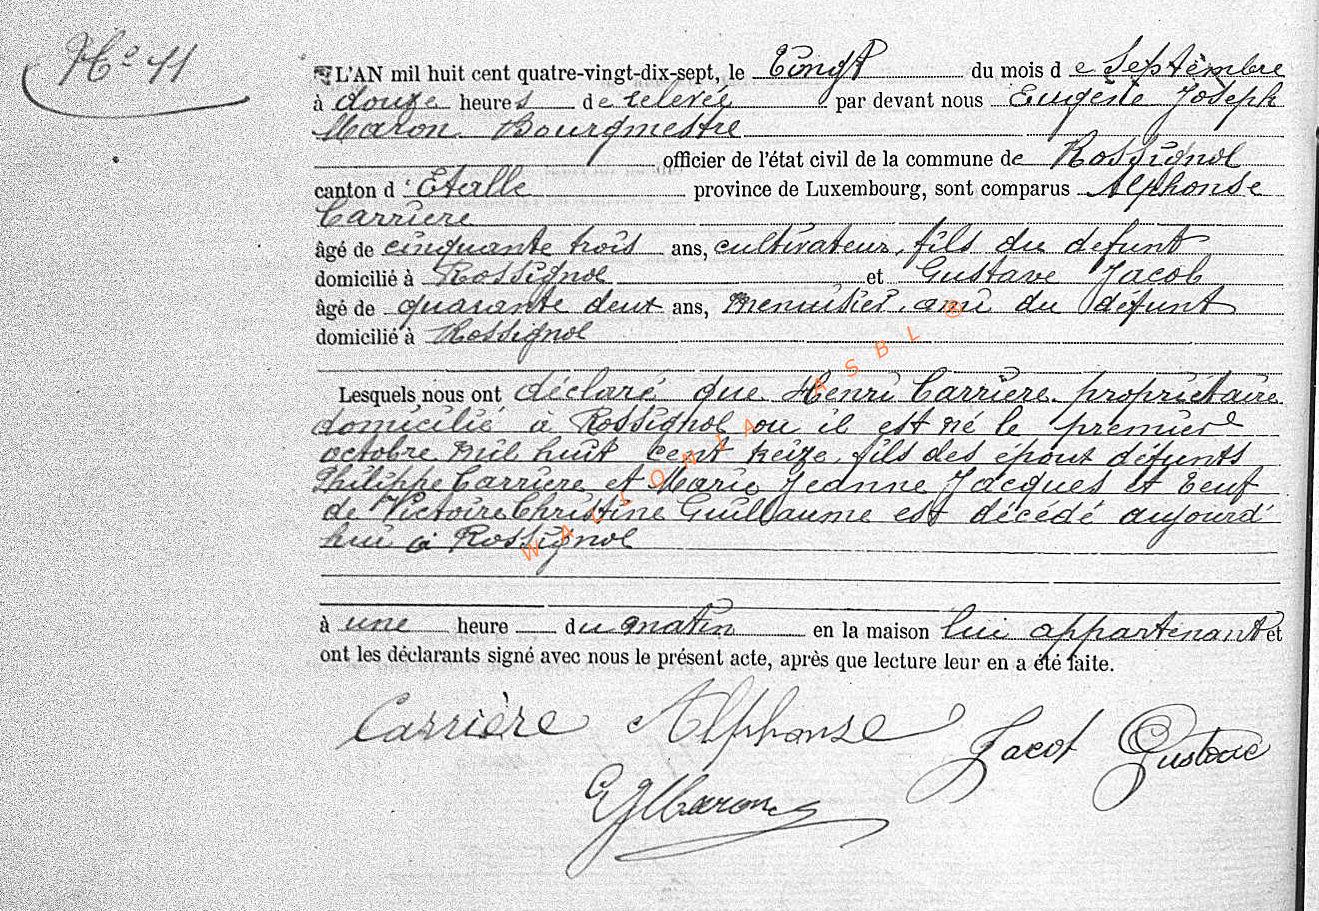 N° 11
L'AN mil huit cent quatre-vingt-dix-sept, le vingt du mois de Septembre
à douze heures de relevée par devant nous Eugène Joseph
Maron Bourgmestre
officier de l'état civil de la commune de Rossignol
canton d'Etalle province de Luxembourg, sont comparus Alphonse
Carrière
âgé de cinquante trois ans, cultivateur, fils du defunt
domicilié à Rossignol et Gustave Jacob
âgé de quarante deux ans, menuisier, ami du defunt
domicilié à Rossignol
Lesquels nous ont déclaré que Henri Carrière propriétaire
domicilié à Rossignol ou il est né le premier
octobre mil huit cent treize, fils des époux défunts
Philippe Carrière et Marie Jeanne Jacques et veuf
de Victoire Christine Guillaume est décédé aujourd'
hui à Rossignol
à une heure du matin en la maison lui appartenant et
ont les déclarants signé avec nous le présent acte, après que lecture leur en a été faite.
Carrière Alphonse Jacob Gustave
EJMaron
WALLONIA ASBL ©